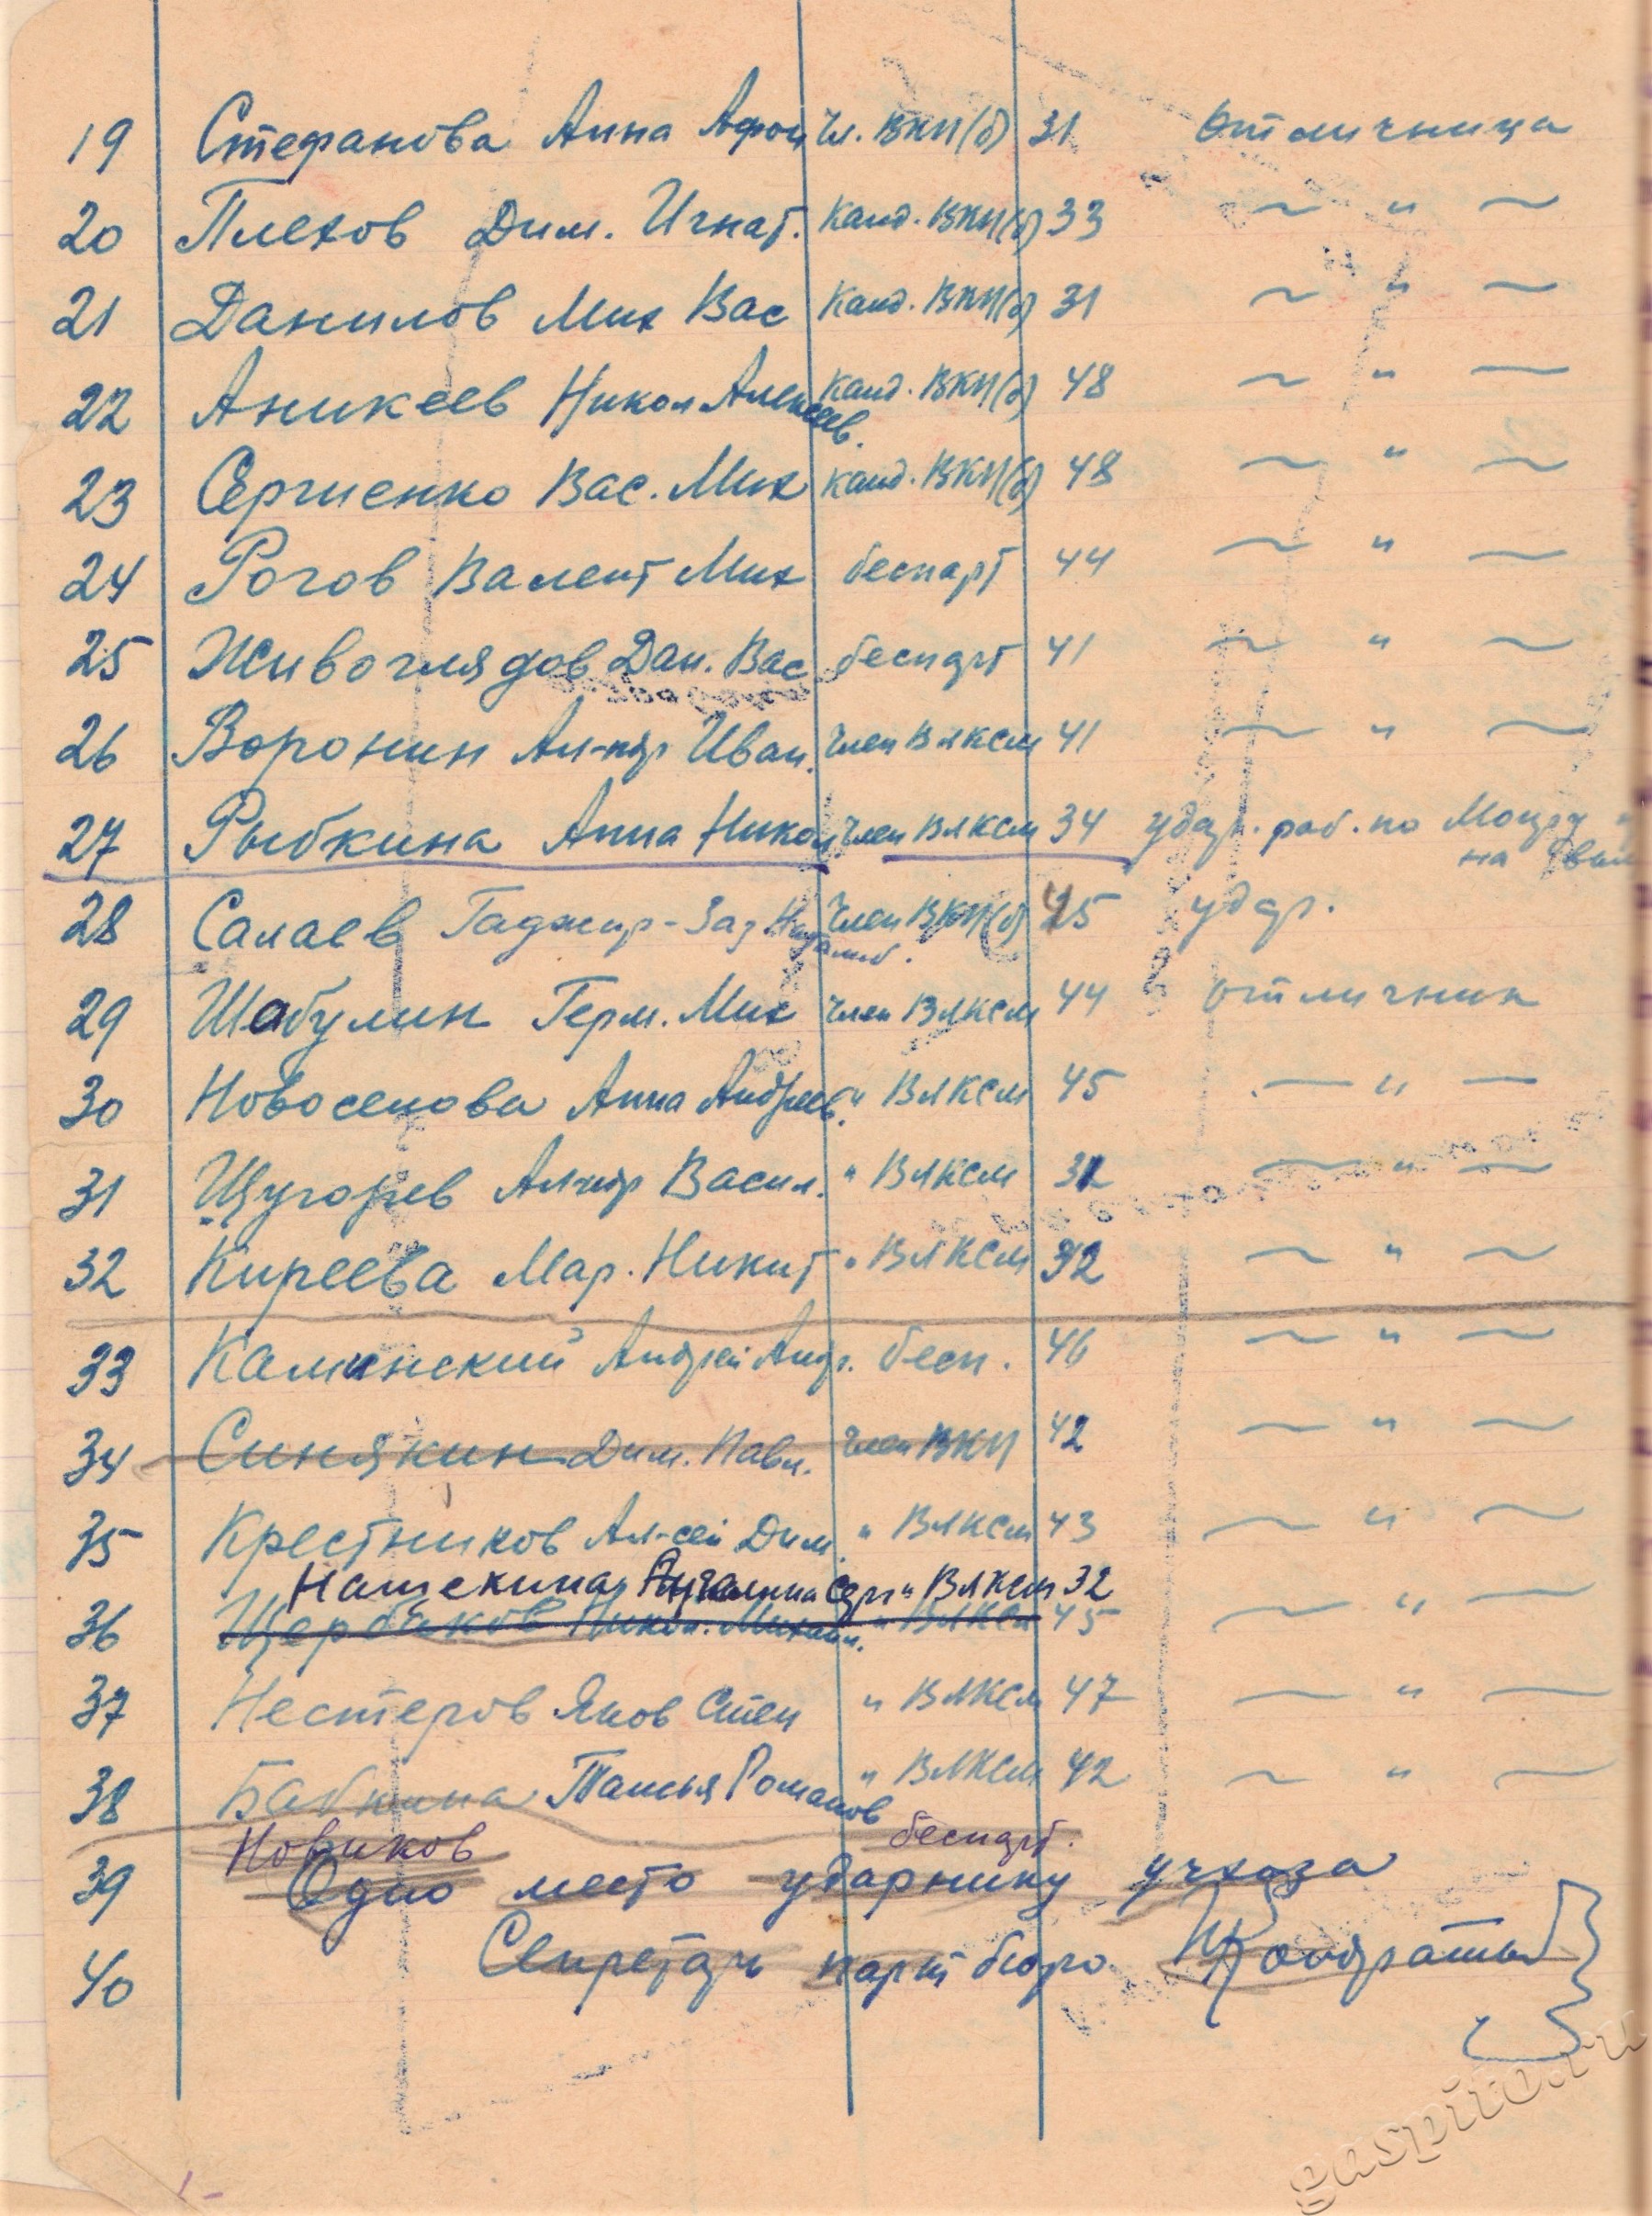 19 Стефанова Анна Афон чл. ВКП(б) 31 отличница
20 Плехов Дим. Игнат. Канд. ВКП(б) 33 ~ " ~
21 Данилов Мих Вас Канд. ВКП(б) 31 ~ " ~
22 Аникеев Никол Алексеев. Канд. ВКП(б) 48 ~ " ~
23 Сергиенко Вас. Мих канд. ВКП(б) 48 ~ " ~
24 Рогов Валент Мих беспарт 44 ~ " ~
25 Живоглядов Дан. Вас беспарт 41 ~ " ~
26 Воронин Ал-ндр Иван. Член ВЛКСМ 41 ~ " ~
27 Рыбкина Анна Никол. Член ВЛКСМ 34 удар. раб. по
на
28 Салаев Член ВКП(б) 45 удар.
29 Шабулин Герм. Мих член ВЛКСМ 44 отличник
30 Новоселова Анна Андреев. " ВЛКСМ 45 — " —
31 Щугорев Ал-ндр Васил. " ВЛКСМ 32 — " —
32 Киреева Мар. Никит " ВЛКСМ 32 ~ " ~
33 Каминский Андрей Андр. бесп. 46 ~ " ~
34 Синякин Дим. Павл. Член ВКП 42 ~ " ~
35 Крестников Ал-сей Дим. " ВЛКСМ 43 ~ " ~
Нащекина Серг " ВЛКСМ 32
36 Щербаков Никол. Михайл. " ВЛКСМ 45 ~ " ~
37 Нестеров Яков Степ " ВЛКСМ 47 ~ " ~
38 Бабкина Таисья Романов " ВЛКСМ 42 ~ " ~
Новиков беспарт.
39 Одно место ударнику учхоза
40 Секретарь парт бюро
gaspito.ru